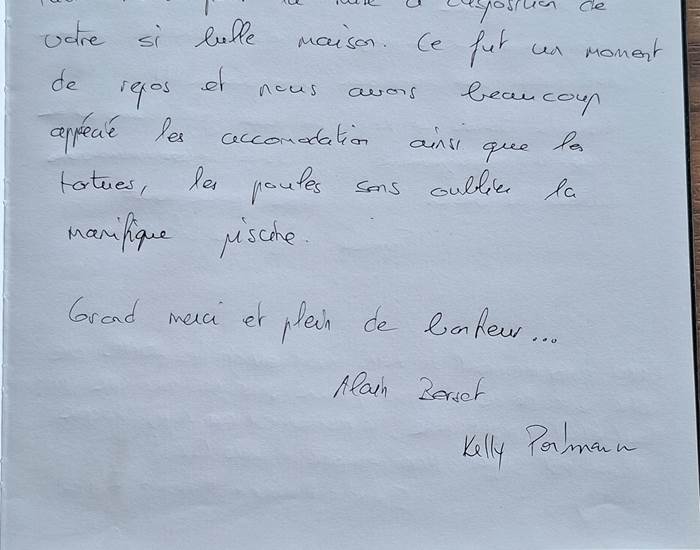 la mise à disposition de
votre si belle maison. Ce fut un moment
de repos et nous avons beaucoup
apprécié les accomodation ainsi que les
tortues, les poules sans oublier la
manifique piscine.
Grand merci et plein de bonheur...
Alain Berset
Kelly Portmann